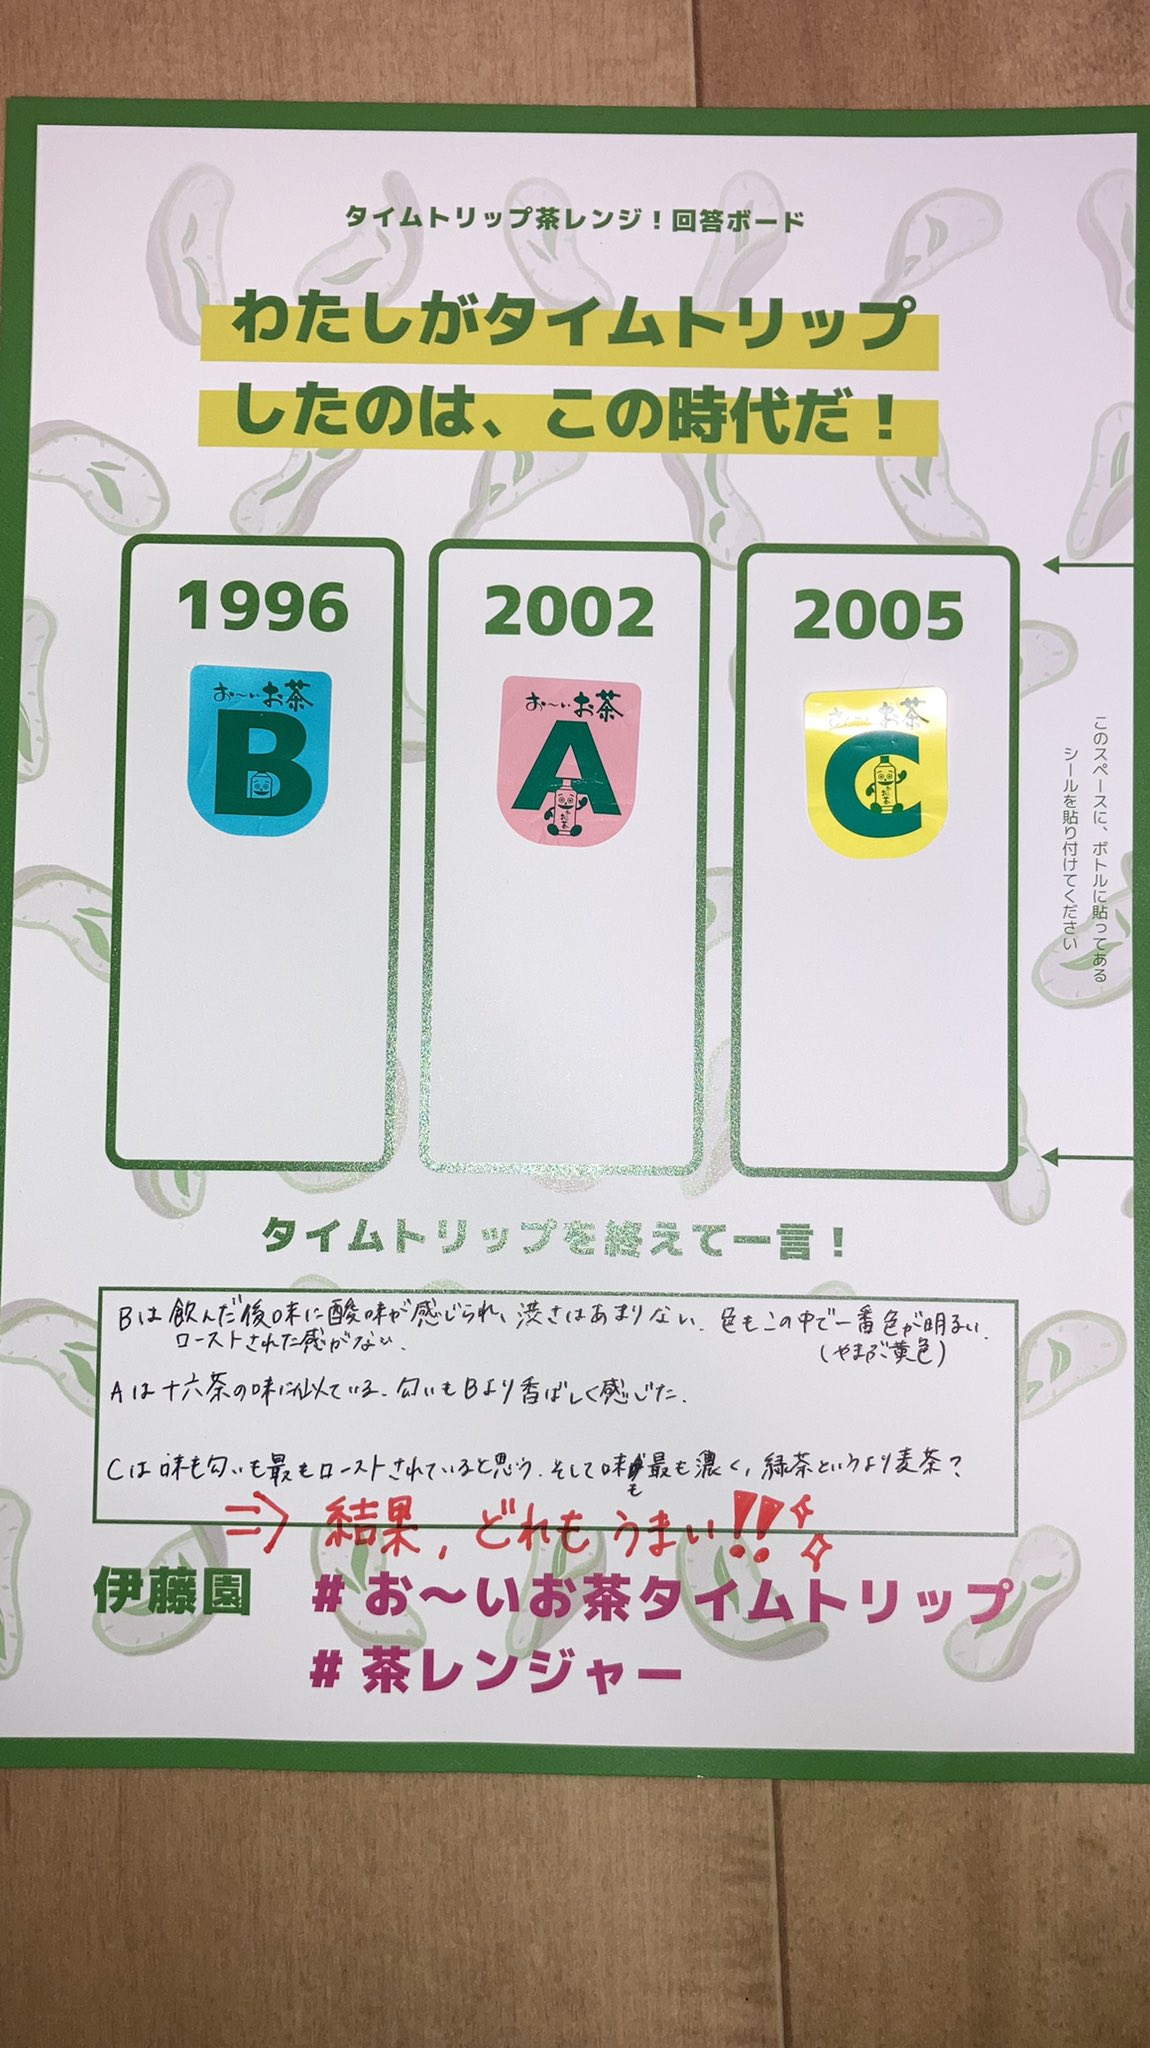 タイムトリップ茶レンジ！回答ボード
わたしがタイムトリップ
したのは、この時代だ！
1996
2002
2005
お～いお茶
B
お～いお茶
A
お～いお茶
C
このスペースに、ボトルに貼ってある
シールを貼り付けてください
タイムトリップを終えて一言！
Bは飲んだ後味に酸味が感じられ、渋さはあまりない. 色もこの中で一番色が明るい.
ローストされた感がない.
(やまぶき黄色)
Aは十六茶の味に似ている. 匂いもBより香ばしく感じた.
Cは味も匂いも最もローストされていると思う. そして味も最も濃く, 緑茶というより麦茶?
⇒ 結果, どれもうまい!!
伊藤園
#お～いお茶タイムトリップ
#茶レンジャー